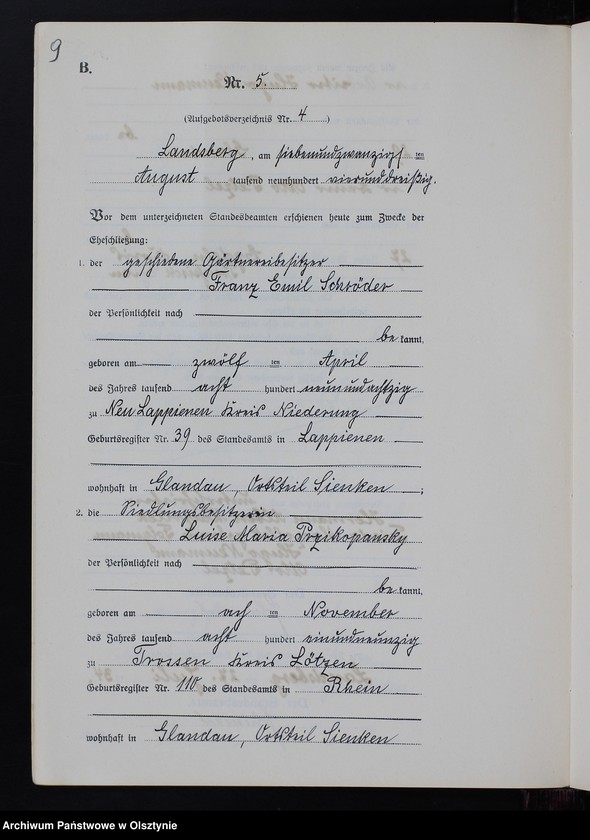 9
B.
Nr. 5.
(Aufgebotsverzeichnis Nr. 4)
Landsberg, am siebenundzwanzigsten
August tausend neunhundert vierunddreißig.
Vor dem unterzeichneten Standesbeamten erschienen heute zum Zwecke der
Eheschließung:
1. der geschiedene Gärtnereibesitzer
Franz Emil Schröder
der Persönlichkeit nach
bekannt,
geboren am zwölf ten April
des Jahres tausend acht hundert neunundachtzig
zu Neu Lappienen Kreis Niederung
Geburtsregister Nr. 39 des Standesamts in Lappienen
wohnhaft in Glandau, Ortsteil Sienken;
2. die Siedlungsbesitzerin
Luise Maria Przikopansky
der Persönlichkeit nach
bekannt,
geboren am ach ten November
des Jahres tausend acht hundert einundneunzig
zu Trossen Kreis Lötzen
Geburtsregister Nr. 110 des Standesamts in Rhein
wohnhaft in Glandau, Ortsteil Sienken
Archiwum Państwowe w Olsztynie